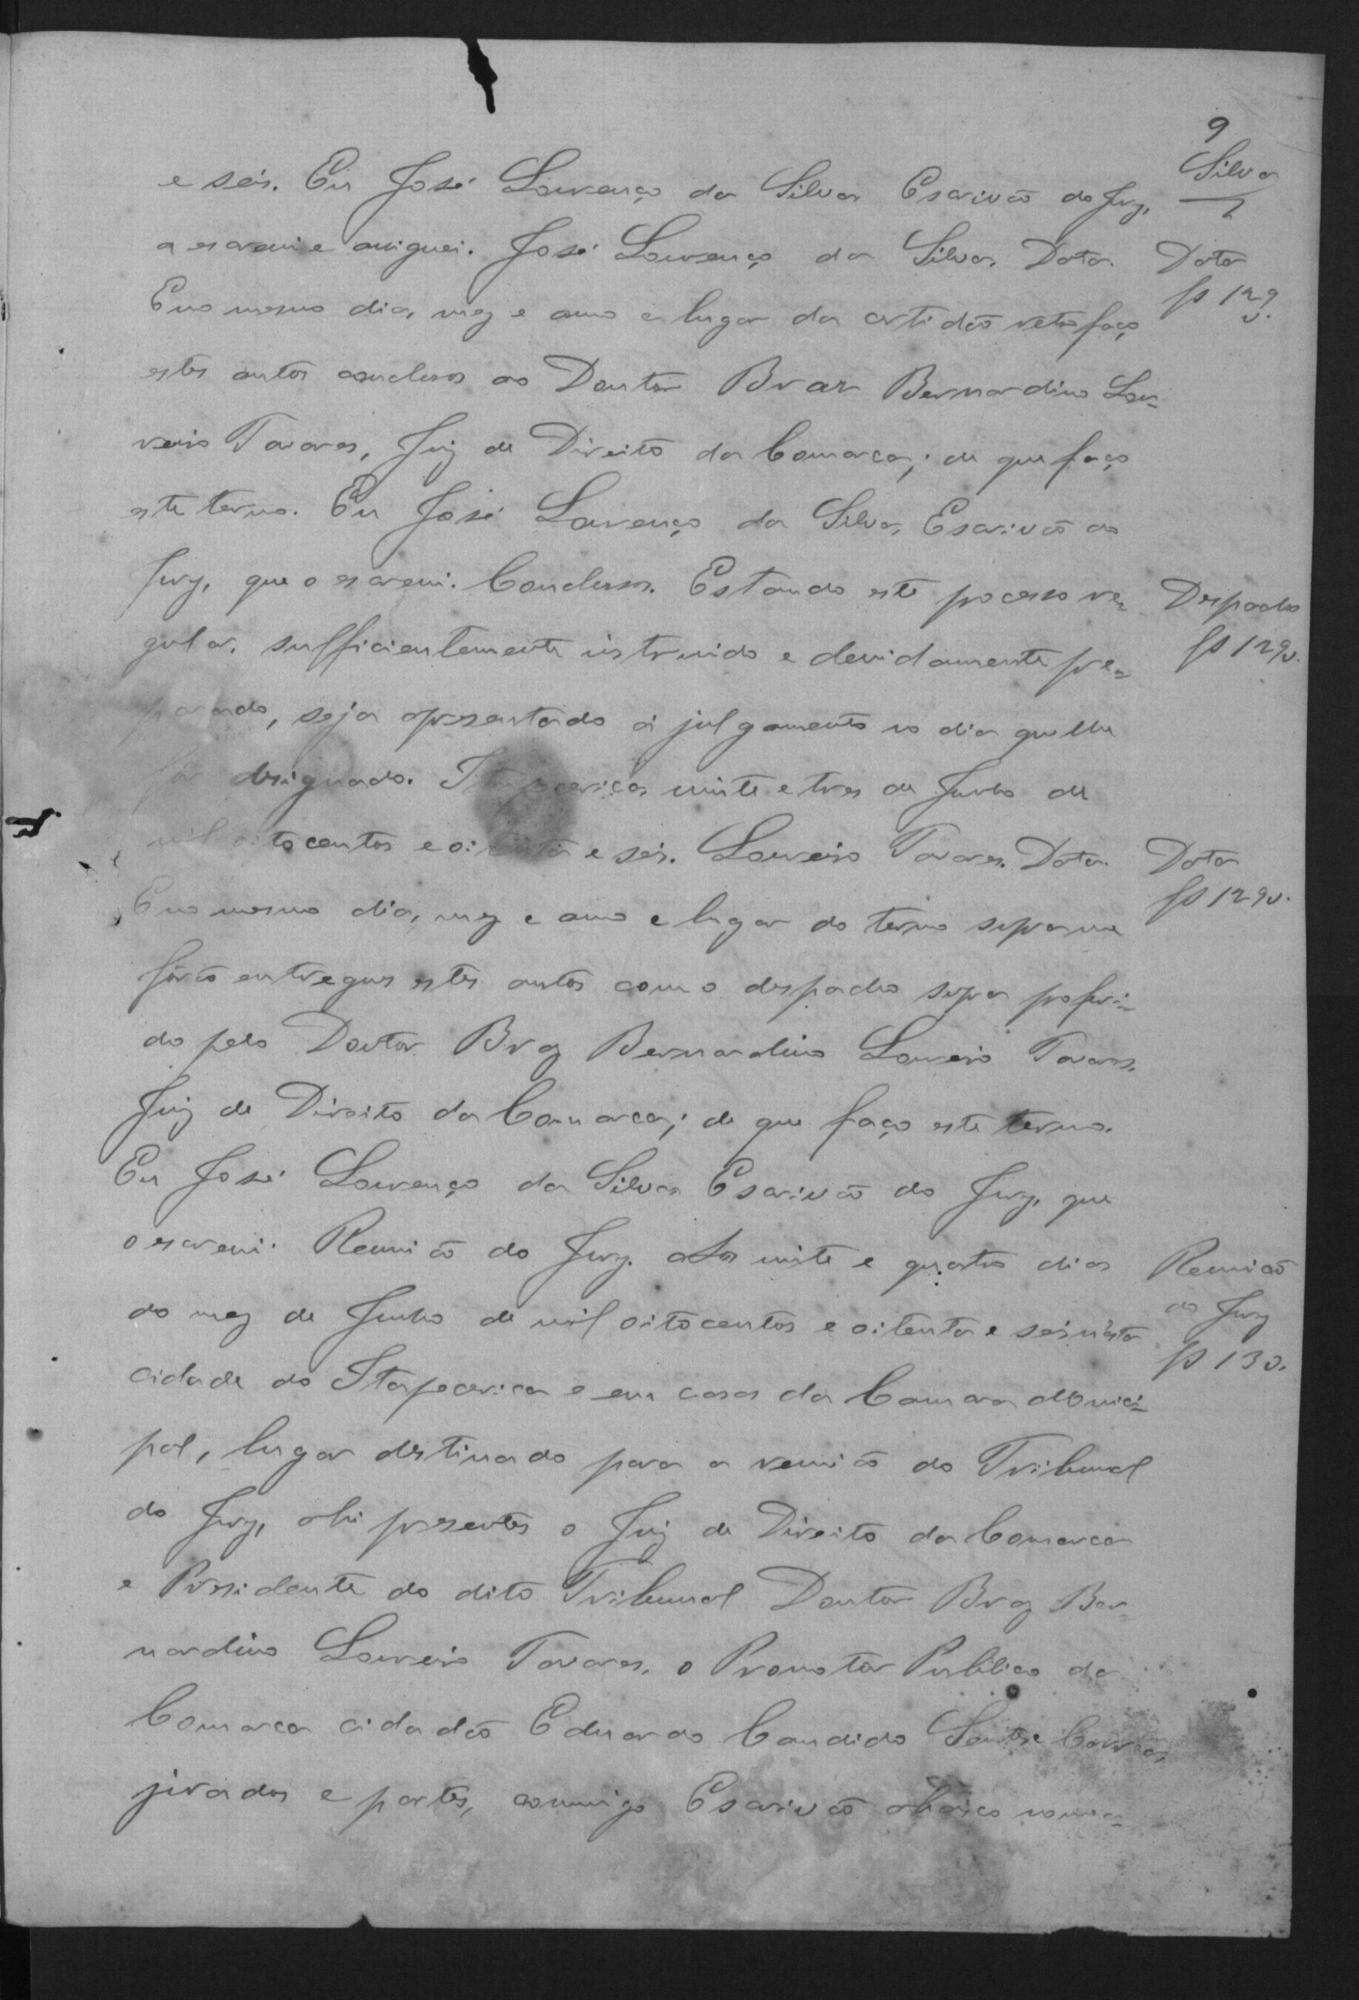 9
Silva
e seis. Eu José Lourenço da Silva Escrivão do Jury,
a escrevi e assignei. José Lourenço da Silva. Data.
Data
fs 129
v.
E no mesmo dia, mez e anno e lugar da certidão retro faço
estes autos conclusos ao Doutor Braz Bernardino Lou-
reiro Tavares, Juiz de Direito da Comarca; de que faço
este termo. Eu José Lourenço da Silva, Escrivão do
Jury, que o escrevi. Conclusos. Estando este processo re-
Despacho
fs 129v.
gular, sufficientemente instruido e devidamente pre-
parado, seja apresentado á julgamento no dia que lhe
fôr designado. Itapecerica, vinte e tres de Junho de
mil oitocentos e oitenta e seis. Loureiro Tavares. Data.
Data
fs 129v.
E no mesmo dia, mez e anno e lugar do termo supra me
fôrão entregues estes autos com o despacho supra proferi-
do pelo Doutor Braz Bernardino Loureiro Tavares,
Juiz de Direito da Comarca; de que faço este termo.
Eu José Lourenço da Silva Escrivão do Jury, que
o escrevi. Reunião do Jury. Aos vinte e quatro dias
Reunião
do Jury
fs 130.
do mez de Junho de mil oitocentos e oitenta e seis n'esta
cidade do Itapecerica e em casa da Camara Munici-
pal, lugar destinado para a reunião do Tribunal
do Jury, ahi presentes o Juiz de Direito da Comarca
e Presidente do dito Tribunal Doutor Braz Ber-
nardino Loureiro Tavares, o Promotor Publico da
Comarca cidadão Eduardo Candido Correa,
jurados e partes, commigo Escrivão abaixo nomea-